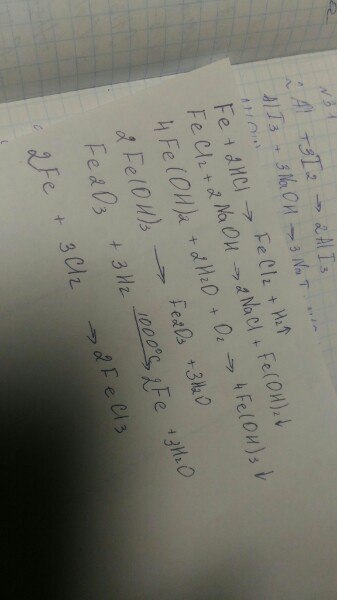 N31
Al + 3I2 → 2AlI3
AlI3 + 3NaOH → 3NaI
Fe + 2HCl → FeCl2 + H2↑
FeCl2 + 2NaOH → 2NaCl + Fe(OH)2↓
4Fe(OH)2 + 2H2O + O2 → 4Fe(OH)3↓
2Fe(OH)3 → Fe2O3 + 3H2O
Fe2O3 + 3H2 1000°C→ 2Fe + 3H2O
2Fe + 3Cl2 → 2FeCl3